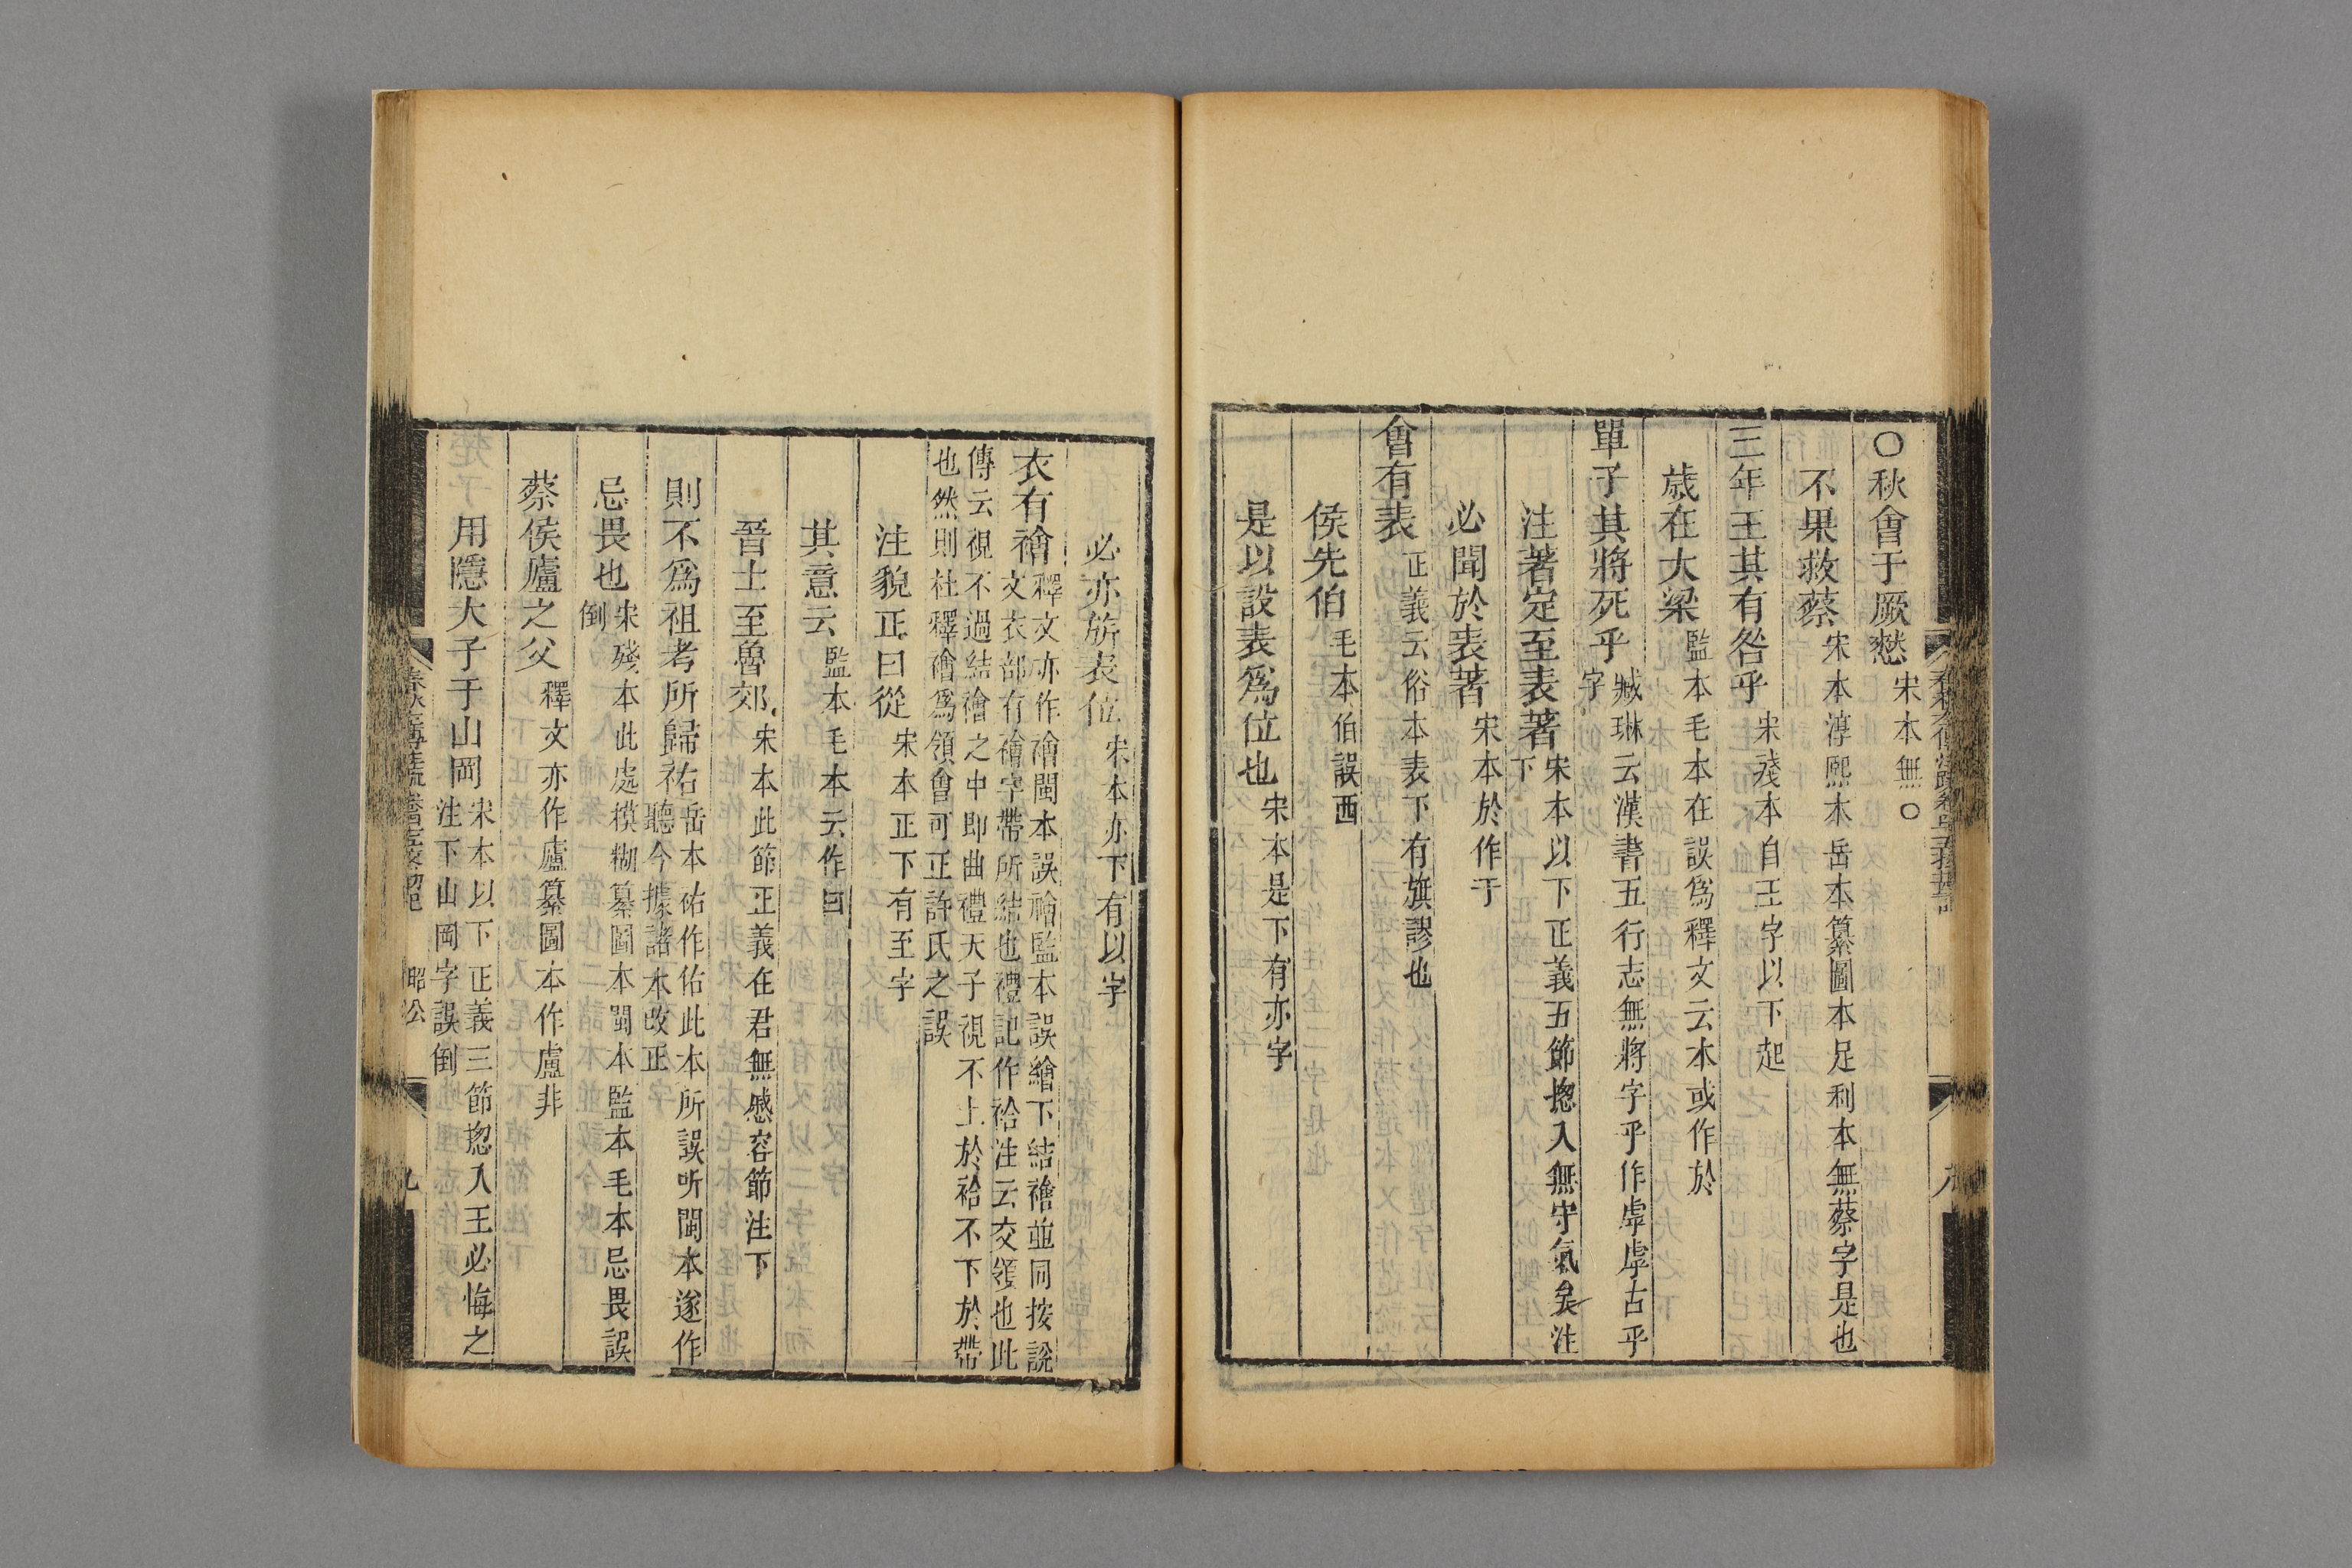 〇秋會于厥憖宋本無〇
不果救蔡宋本淳熙本岳本纂圖本足利本無蔡字是也
三年王其有咎乎宋殘本自王字以下起
歲在大梁監本毛本在誤爲釋文云本或作於
單子其將死乎臧琳云漢書五行志無將字乎作虖虖古乎字
注著定至表著宋本以下正義五節揔入無守氣矣注下
必聞於表著宋本於作于
會有表正義云俗本表下有旗謬也
侯先伯毛本伯誤西
是以設表爲位也宋本是下有亦字
必亦旂表位宋本亦下有以字
衣有襘釋文亦作襘閩本誤禬監本誤繪下結襘並同按說文衣部有襘字帶所結也禮記作袷注云交領也此
傳云視不過結襘之中即曲禮天子視不上於袷不下於帶也然則杜釋襘爲領會可正許氏之誤
注貌正曰從宋本正下有至字
其意云監本毛本云作曰
晉士至魯郊宋本此節正義在君無慼容節注下
則不爲祖考所歸祐岳本祐作佑此本所誤听閩本遂作聽今據諸本改正
忌畏也宋殘本此處模糊纂圖本閩本監本毛本忌畏誤倒
蔡侯廬之父釋文亦作廬纂圖本作盧非
用隱大子于山岡宋本以下正義三節揔入王必悔之注下山岡字誤倒
昭公
九